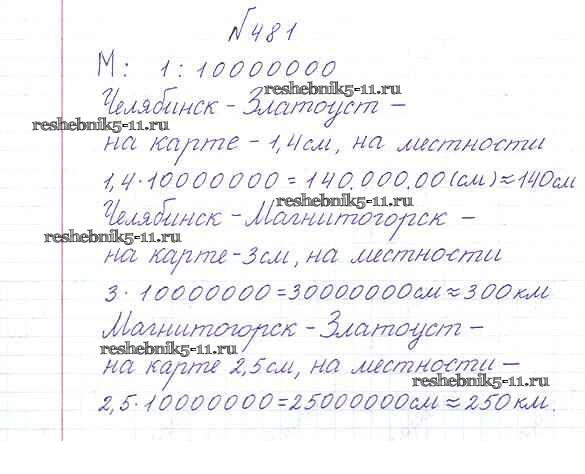 №481
М: 1:10000000
reshebnik5-11.ru
Челябинск-Златоуст-
reshebnik5-11.ru
на карте-1,4см, на местности
1,4·10000000=140.000.00(см)≈140см
reshebnik5-11.ru
Челябинск-Магнитогорск-
reshebnik5-11.ru
на карте-3см, на местности
3·10000000=30000000см≈300км
Магнитогорск-Златоуст-
reshebnik5-11.ru
на карте 2,5см, на местности-
reshebnik5-11.ru
2,5·10000000=25000000см≈250км.